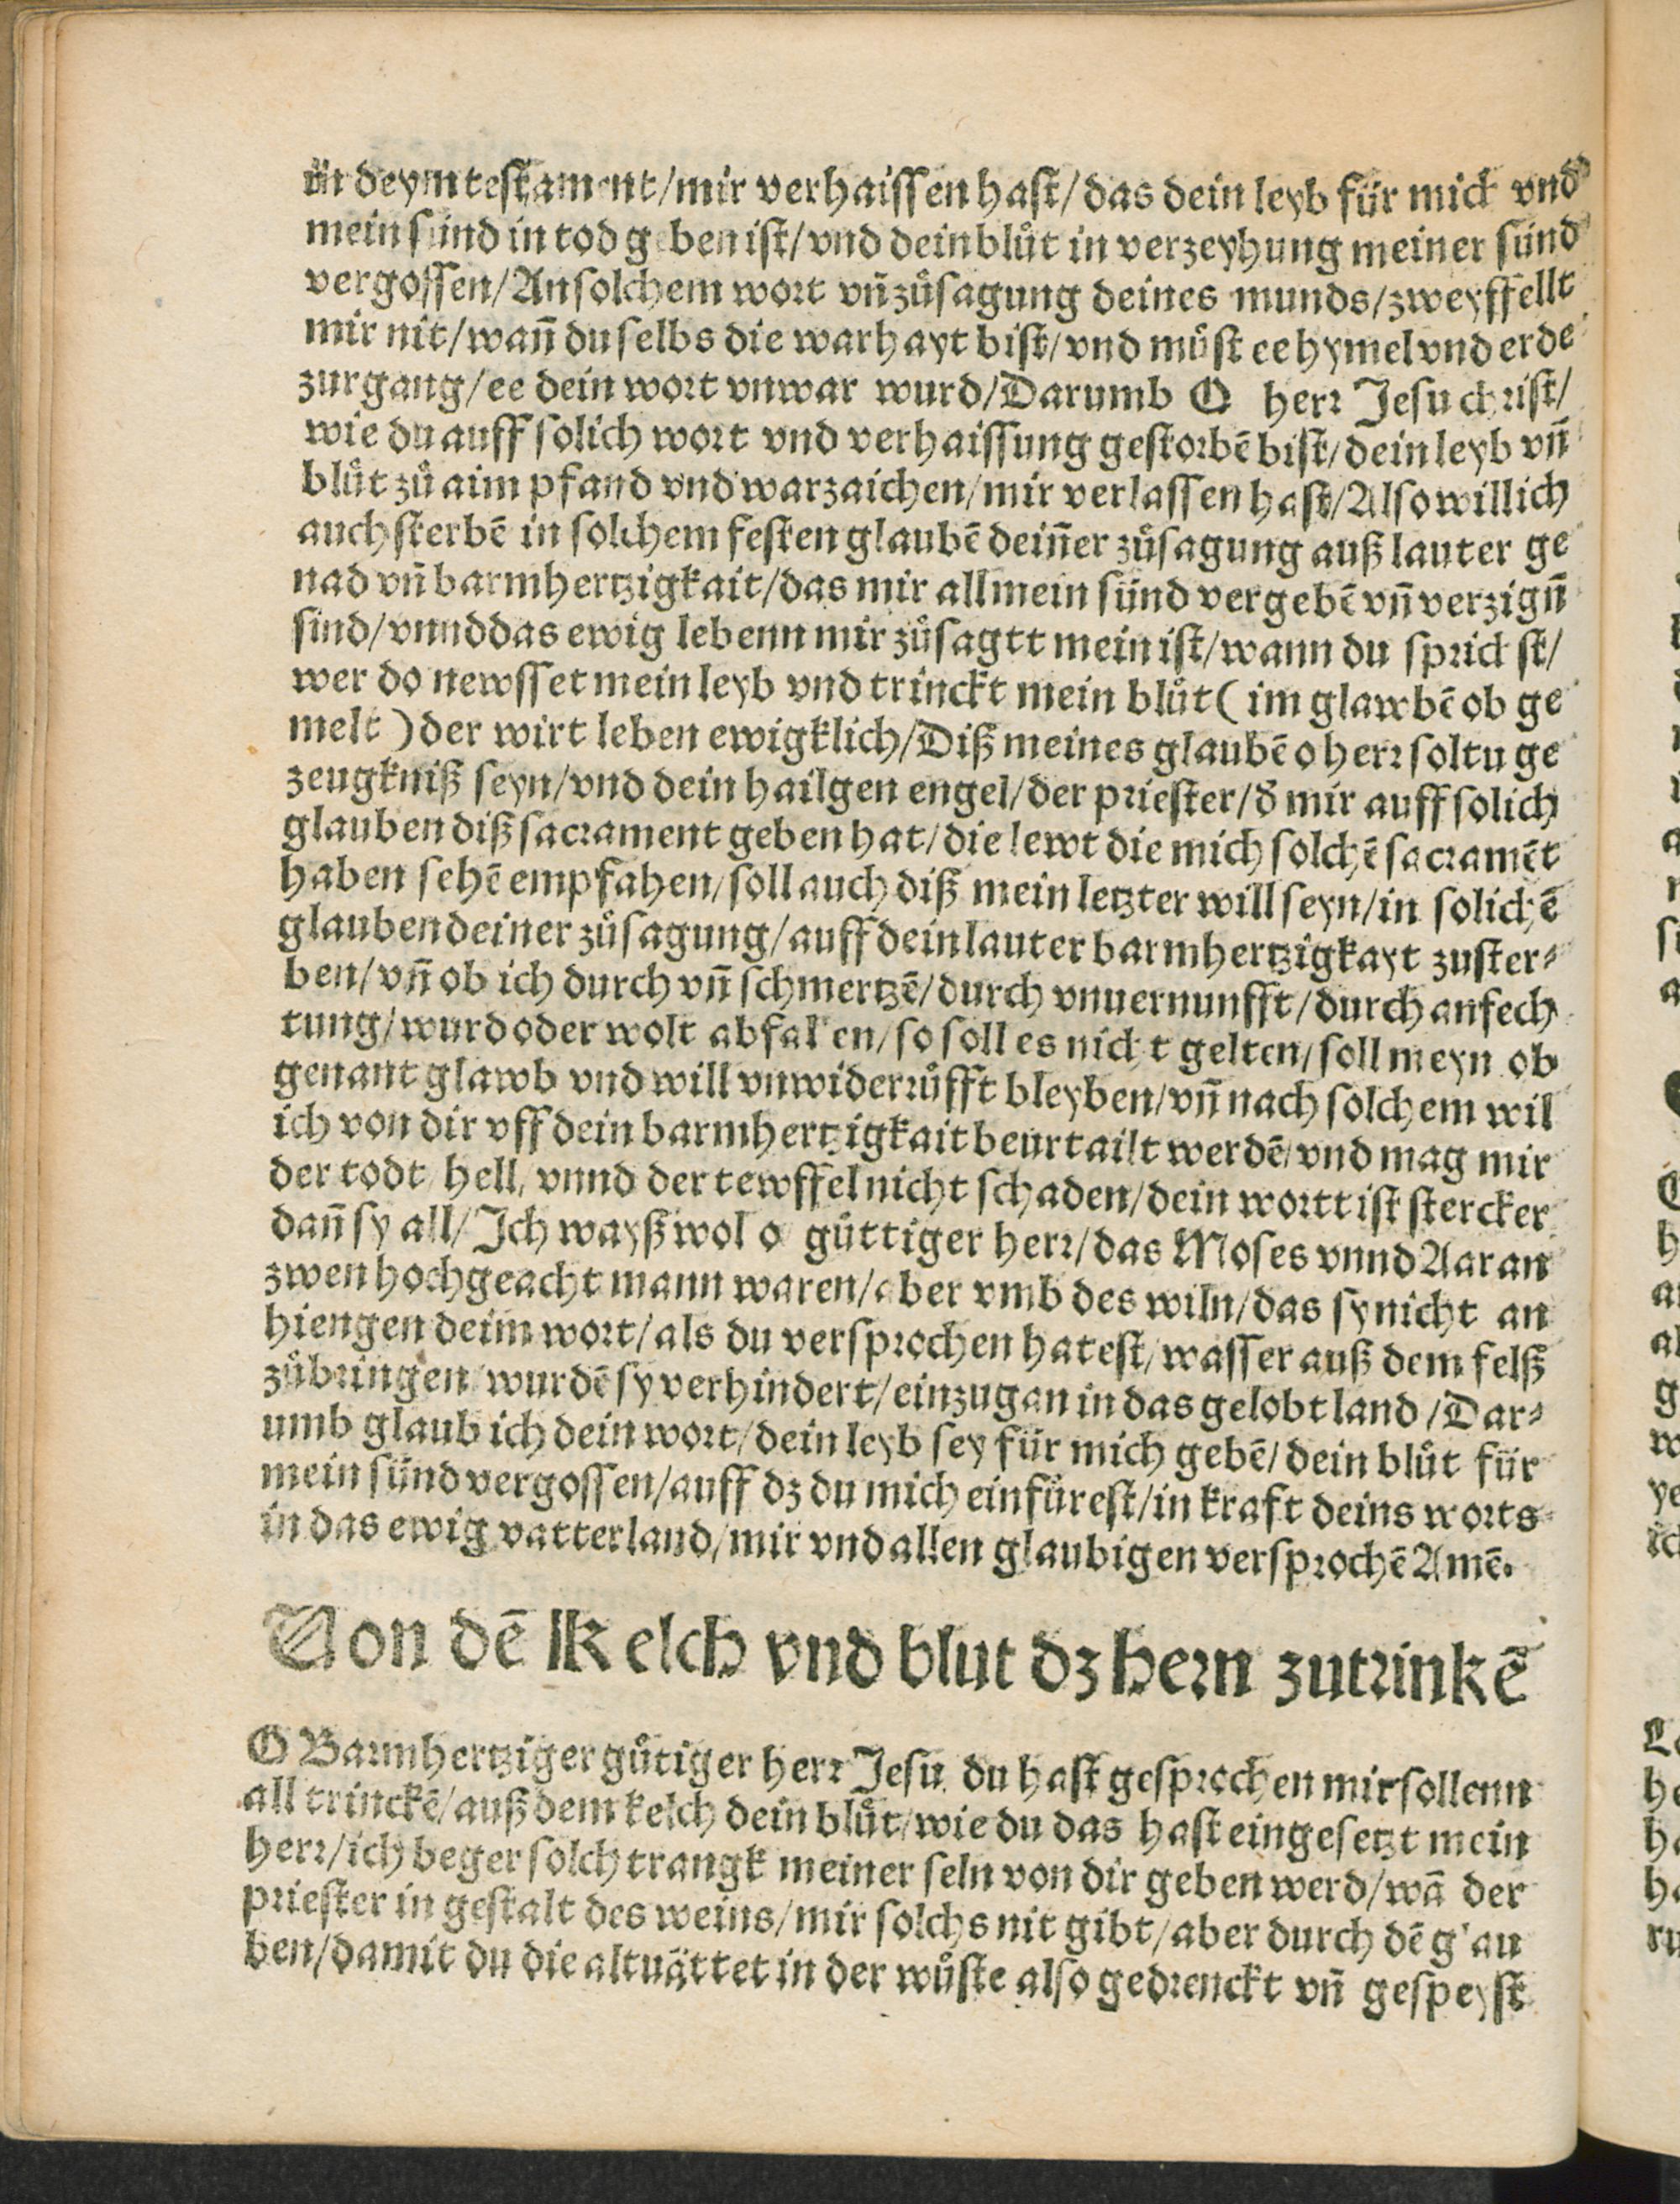 in deym testament/mir verhaissen hast/das dein leyb für mich vnd
mein sünd in tod geben ist/vnd dein blůt in verzeyhung meiner sünd
vergossen/An solchem wort vñ zůsagung deines munds/zweyffellt
mir nit/wañ du selbs die warhayt bist/vnd můst ee hymel vnd erde
zurgang/ee dein wort vnwar wurd/Darumb O herr Jesu christ/
wie du auff solich wort vnd verhaissung gestorbē bist/dein leyb vñ
blůt zů aim pfand vnd warzaichen/mir verlassen hast/Also will ich
auch sterbē in solchem festen glaubē deiñer zůsagung auß lauter ge
nad vñ barmhertzigkait/das mir all mein sünd vergebē vñ verzigñ
sind/vnnd das ewig lebenn mir zůsagtt mein ist/wann du sprichst/
wer do newsset mein leyb vnd trinckt mein blůt (im glawbē ob ge
melt) der wirt leben ewigklich/Diß meines glaubē o herr soltu ge
zeugkniß seyn/vnd dein hailgen engel/der priester/d̄ mir auff solich
glauben diß sacrament geben hat/die lewt die mich solchē sacramēt
haben sehē empfahen/soll auch diß mein letzter will seyn/in solichē
glauben deiner zůsagung/auff dein lauter barmhertzigkayt zuster⸗
ben/vñ ob ich durch vñ schmertzē/durch vnuernunfft/durch anfech
tung/wurd oder wolt abfallen/so soll es nicht gelten/soll meyn ob
genant glawb vnd will vnwiderrůfft bleyben/vñ nach solchem wil
ich von dir vff dein barmhertzigkait beurtailt werdē/vnd mag mir
der todt/hell/vnnd der tewffel nicht schaden/dein wortt ist stercker
dañ sy all/Ich wayß wol o gůttiger herr/das Moses vnnd Aaran
zwen hochgeacht mann waren/aber vmb des wiln/das sy nicht an
hiengen deim wort/als du versprochen hatest/wasser auß dem felß
zůbringen/wurdē sy verhindert/einzugan in das gelobt land/Dar⸗
umb glaub ich dein wort/dein leyb sey für mich gebē/dein blůt für
mein sünd vergossen/auff dz du mich einfürest/in kraft deins worts
in das ewig vatterland/mir vnd allen glaubigen versprochē Amē.
Von dē Kelch vnd blut dz hern zutrinkē
O Barmhertziger gůtiger herr Jesu du hast gesprochen mir sollenn
all trinckē/auß dem kelch dein blůt/wie du das hast eingesetzt mein
herr/ich beger solch trangk meiner seln von dir geben werd/wā der
priester in gestalt des weins/mir solchs nit gibt/aber durch dē glau
ben/damit du die altuättet in der wůste also gedrenckt vñ gespeyst